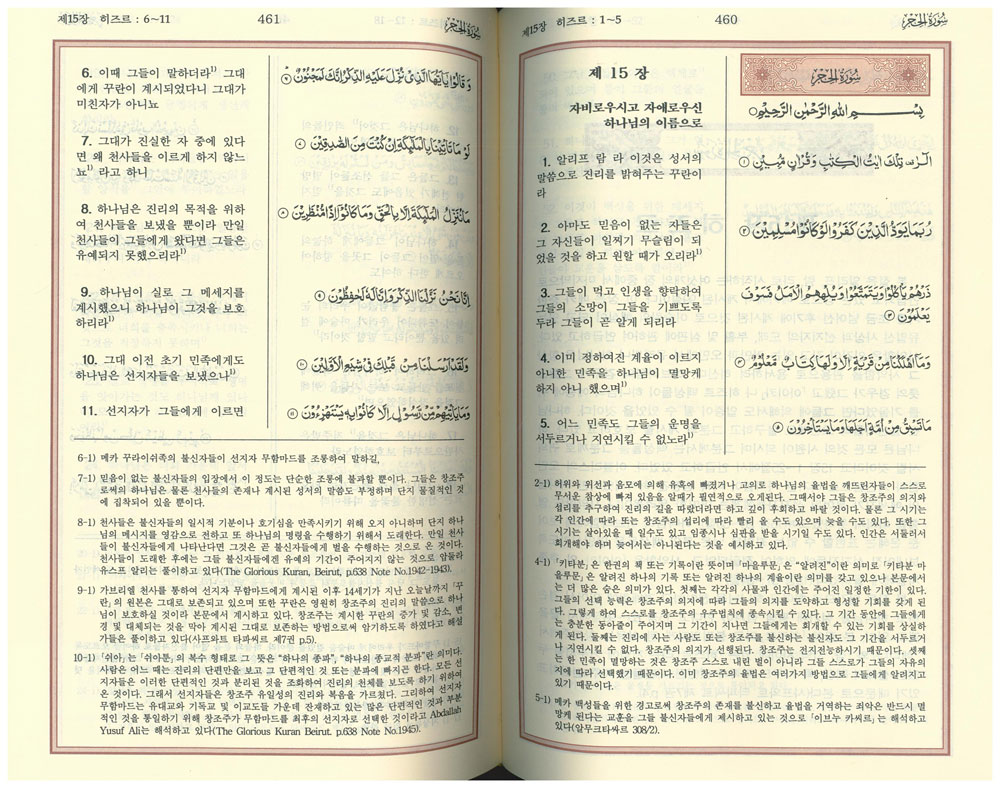 제15장 히즈르 : 1~5
460
سُورَةُ الحِجْر
제 15 장
سُورَةُ الحِجْر
자비로우시고 자애로우신
하나님의 이름으로
بِسْمِ اللَّهِ الرَّحْمَٰنِ الرَّحِيمِ
1. 알리프 람 라 이것은 성서의
말씀으로 진리를 밝혀주는 꾸란이
라
الٓرۚ تِلْكَ ءَايَٰتُ ٱلْكِتَٰبِ وَقُرْءَانٍ مُّبِينٍ ١
2. 아마도 믿음이 없는 자들은
그 자신들이 일찌기 무슬림이 되
었을 것을 하고 원할 때가 오리라¹⁾
رُّبَمَا يَوَدُّ ٱلَّذِينَ كَفَرُوا۟ لَوْ كَانُوا۟ مُسْلِمِينَ ٢
3. 그들이 먹고 인생을 향락하여
그들의 소망이 그들을 기쁘도록
두라 그들이 곧 알게 되리라
ذَرْهُمْ يَأْكُلُوا۟ وَيَتَمَتَّعُوا۟ وَيُلْهِهِمُ ٱلْأَمَلُ فَسَوْفَ
يَعْلَمُونَ ٣
4. 이미 정하여진 계율이 이르지
아니한 민족을 하나님이 멸망케
하지 아니 했으며¹⁾
وَمَآ أَهْلَكْنَا مِن قَرْيَةٍ إِلَّا وَلَهَا كِتَابٌ مَّعْلُومٌ ٤
5. 어느 민족도 그들의 운명을
서두르거나 지연시킬 수 없노라¹⁾
مَّا تَسْبِقُ مِنْ أُمَّةٍ أَجَلَهَا وَمَا يَسْتَـْٔخِرُونَ ٥
2-1) 허위와 위선과 음모에 의해 유혹에 빠졌거나 고의로 하나님의 율법을 깨뜨린자들이 스스로
무서운 참상에 빠져 있음을 알때가 필연적으로 오게된다. 그때서야 그들은 창조주의 의지와
섭리를 추구하여 진리의 길을 따랐더라면 하고 깊이 후회하고 바랄 것이다. 물론 그 시기는
각 인간에 따라 또는 창조주의 섭리에 따라 빨리 올 수도 있으며 늦을 수도 있다. 또한 그
시기는 살아있을 때 일수도 있고 임종시나 심판을 받을 시기일 수도 있다. 인간은 서둘러서
회개해야 하며 늦어서는 아니된다는 것을 예시하고 있다.
4-1) 「키타분」은 한권의 책 또는 기록이란 뜻이며「마을루문」은 “알려진”이란 의미로「키타분 마
을루문」은 알려진 하나의 기록 또는 알려진 하나의 계율이란 의미를 갖고 있으나 본문에서
는 더 많은 숨은 의미가 있다. 첫째는 각각의 사물과 인간에는 주어진 일정한 기한이 있다.
그들의 선택 능력은 창조주의 의지에 따라 그들의 의지를 도약하고 형성할 기회를 갖게 된
다. 그렇게 하여 스스로를 창조주의 우주법칙에 종속시킬 수 있다. 그 기간 동안에 그들에게
는 충분한 동아줄이 주어지며 그 기간이 지나면 그들에게는 회개할 수 있는 기회를 상실하
게 된다. 둘째는 진리에 사는 사람도 또는 창조주를 불신하는 불신자도 그 기간을 서두르거
나 지연시킬 수 없다. 창조주의 의지가 선행된다. 창조주는 전지전능하시기 때문이다. 셋째
는 한 민족이 멸망하는 것은 창조주 스스로 내린 벌이 아니라 그들 스스로가 그들의 자유의
지에 따라 선택했기 때문이다. 이미 창조주의 율법은 여러가지 방법으로 그들에게 알려지고
있기 때문이다.
5-1) 메카 백성들을 위한 경고로써 창조주의 존재를 불신하고 율법을 거역하는 죄악은 반드시 멸
망케 된다는 교훈을 그들 불신자들에게 제시하고 있는 것으로「이브누 카씨르」는 해석하고
있다(알무크타싸르 308/2).
제15장 히즈르 : 6~11
461
سُورَةُ الحِجْر
6. 이때 그들이 말하더라¹⁾ 그대
에게 꾸란이 계시되었다니 그대가
미친자가 아니뇨
وَقَالُوا۟ يَٰٓأَيُّهَا ٱلَّذِى نُزِّلَ عَلَيْهِ ٱلذِّكْرُ إِنَّكَ لَمَجْنُونٌ ٦
7. 그대가 진실한 자 중에 있다
면 왜 천사들을 이르게 하지 않느
뇨¹⁾ 라고 하니
لَّوْ مَا تَأْتِينَا بِٱلْمَلَٰٓئِكَةِ إِن كُنتَ مِنَ ٱلصَّٰدِقِينَ ٧
8. 하나님은 진리의 목적을 위하
여 천사들을 보냈을 뿐이라 만일
천사들이 그들에게 왔다면 그들은
유예되지 못했으리라¹⁾
مَا نُنَزِّلُ ٱلْمَلَٰٓئِكَةَ إِلَّا بِٱلْحَقِّ وَمَا كَانُوٓا۟ إِذًا مُّنظَرِينَ ٨
9. 하나님이 실로 그 메세지를
계시했으니 하나님이 그것을 보호
하리라¹⁾
إِنَّا نَحْنُ نَزَّلْنَا ٱلذِّكْرَ وَإِنَّا لَهُۥ لَحَٰفِظُونَ ٩
10. 그대 이전 초기 민족에게도
하나님은 선지자들을 보냈으나¹⁾
وَلَقَدْ أَرْسَلْنَا مِن قَبْلِكَ فِى شِيَعِ ٱلْأَوَّلِينَ ١٠
11. 선지자가 그들에게 이르면
وَمَا يَأْتِيهِم مِّن رَّسُولٍ إِلَّا كَانُوا۟ بِهِۦ يَسْتَهْزِءُونَ ١١
6-1) 메카 꾸라이쉬족의 불신자들이 선지자 무함마드를 조롱하여 말하길,
7-1) 믿음이 없는 불신자들의 입장에서 이 정도는 단순한 조롱에 불과할 뿐이다. 그들은 창조주
로써의 하나님은 물론 천사들의 존재나 계시된 성서의 말씀도 부정하며 단지 물질적인 것
에 집착되어 있을 뿐이다.
8-1) 천사들은 불신자들의 일시적 기분이나 호기심을 만족시키기 위해 오지 아니하며 단지 하나
님의 메시지를 영감으로 전하고 또 하나님의 명령을 수행하기 위해서 도래한다. 만일 천사
들이 불신자들에게 나타난다면 그것은 곧 불신자들에게 벌을 수행하는 것으로 온 것이다.
천사들이 도래한 후에는 그들 불신자들에겐 유예의 기간이 주어지지 않는 것으로 압둘라
유스프 알리는 풀이하고 있다(The Glorious Kuran, Beirut, p.638 Note No.1942-1943).
9-1) 가브리엘 천사를 통하여 선지자 무함마드에게 계시된 이후 14세기가 지난 오늘날까지「꾸
란」의 원본은 그대로 보존되고 있으며 또한 꾸란은 영원히 창조주의 진리의 말씀으로 하나
님이 보호하실 것이라 본문에서 계시하고 있다. 창조주는 계시한 꾸란의 증가 및 감소, 변
경 및 대체되는 것을 막아 계시된 그대로 보존하는 방법으로써 암기하도록 하였다고 해설
가들은 풀이하고 있다(사프와트 타파씨르 제7권 p.5).
10-1) 「쉬아」는「쉬아분」의 복수 형태로 그 뜻은 “하나의 종파”, “하나의 종교적 분파”란 의미다.
사람은 어느 때는 진리의 단편만을 보고 그 단편적인 것 또는 분파에 빠지곤 한다. 모든 선
지자들은 이러한 단편적인 것과 분리된 것을 조화하여 진리의 전체를 보도록 하기 위하여
온 것이다. 그래서 선지자들은 창조주 유일성의 진리와 복음을 가르쳤다. 그리하여 선지자
무함마드는 유대교와 기독교 및 이교도들 가운데 잔재하고 있는 많은 단편적인 것과 부분
적인 것을 통일하기 위해 창조주가 무함마드를 최후의 선지자로 선택한 것이라고 Abdallah
Yusuf Ali는 해석하고 있다(The Glorious Kuran Beirut. p.638 Note No.1945).